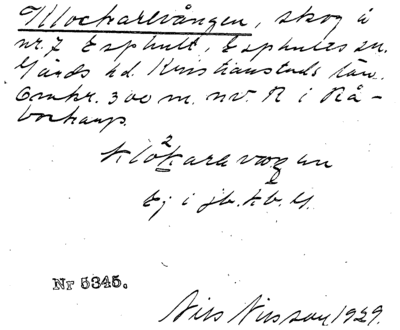 Klockarevången, skog å
nr. 7 Esphult, Esphults sn.
Gärds hd. Kristianstads län.
Omkr. 300 m. nv. R i Rå-
borhaup.
klo²karavaŋen
Ej i jb. kb. G.
Nr 5345.
Nils Nilsson 1929.